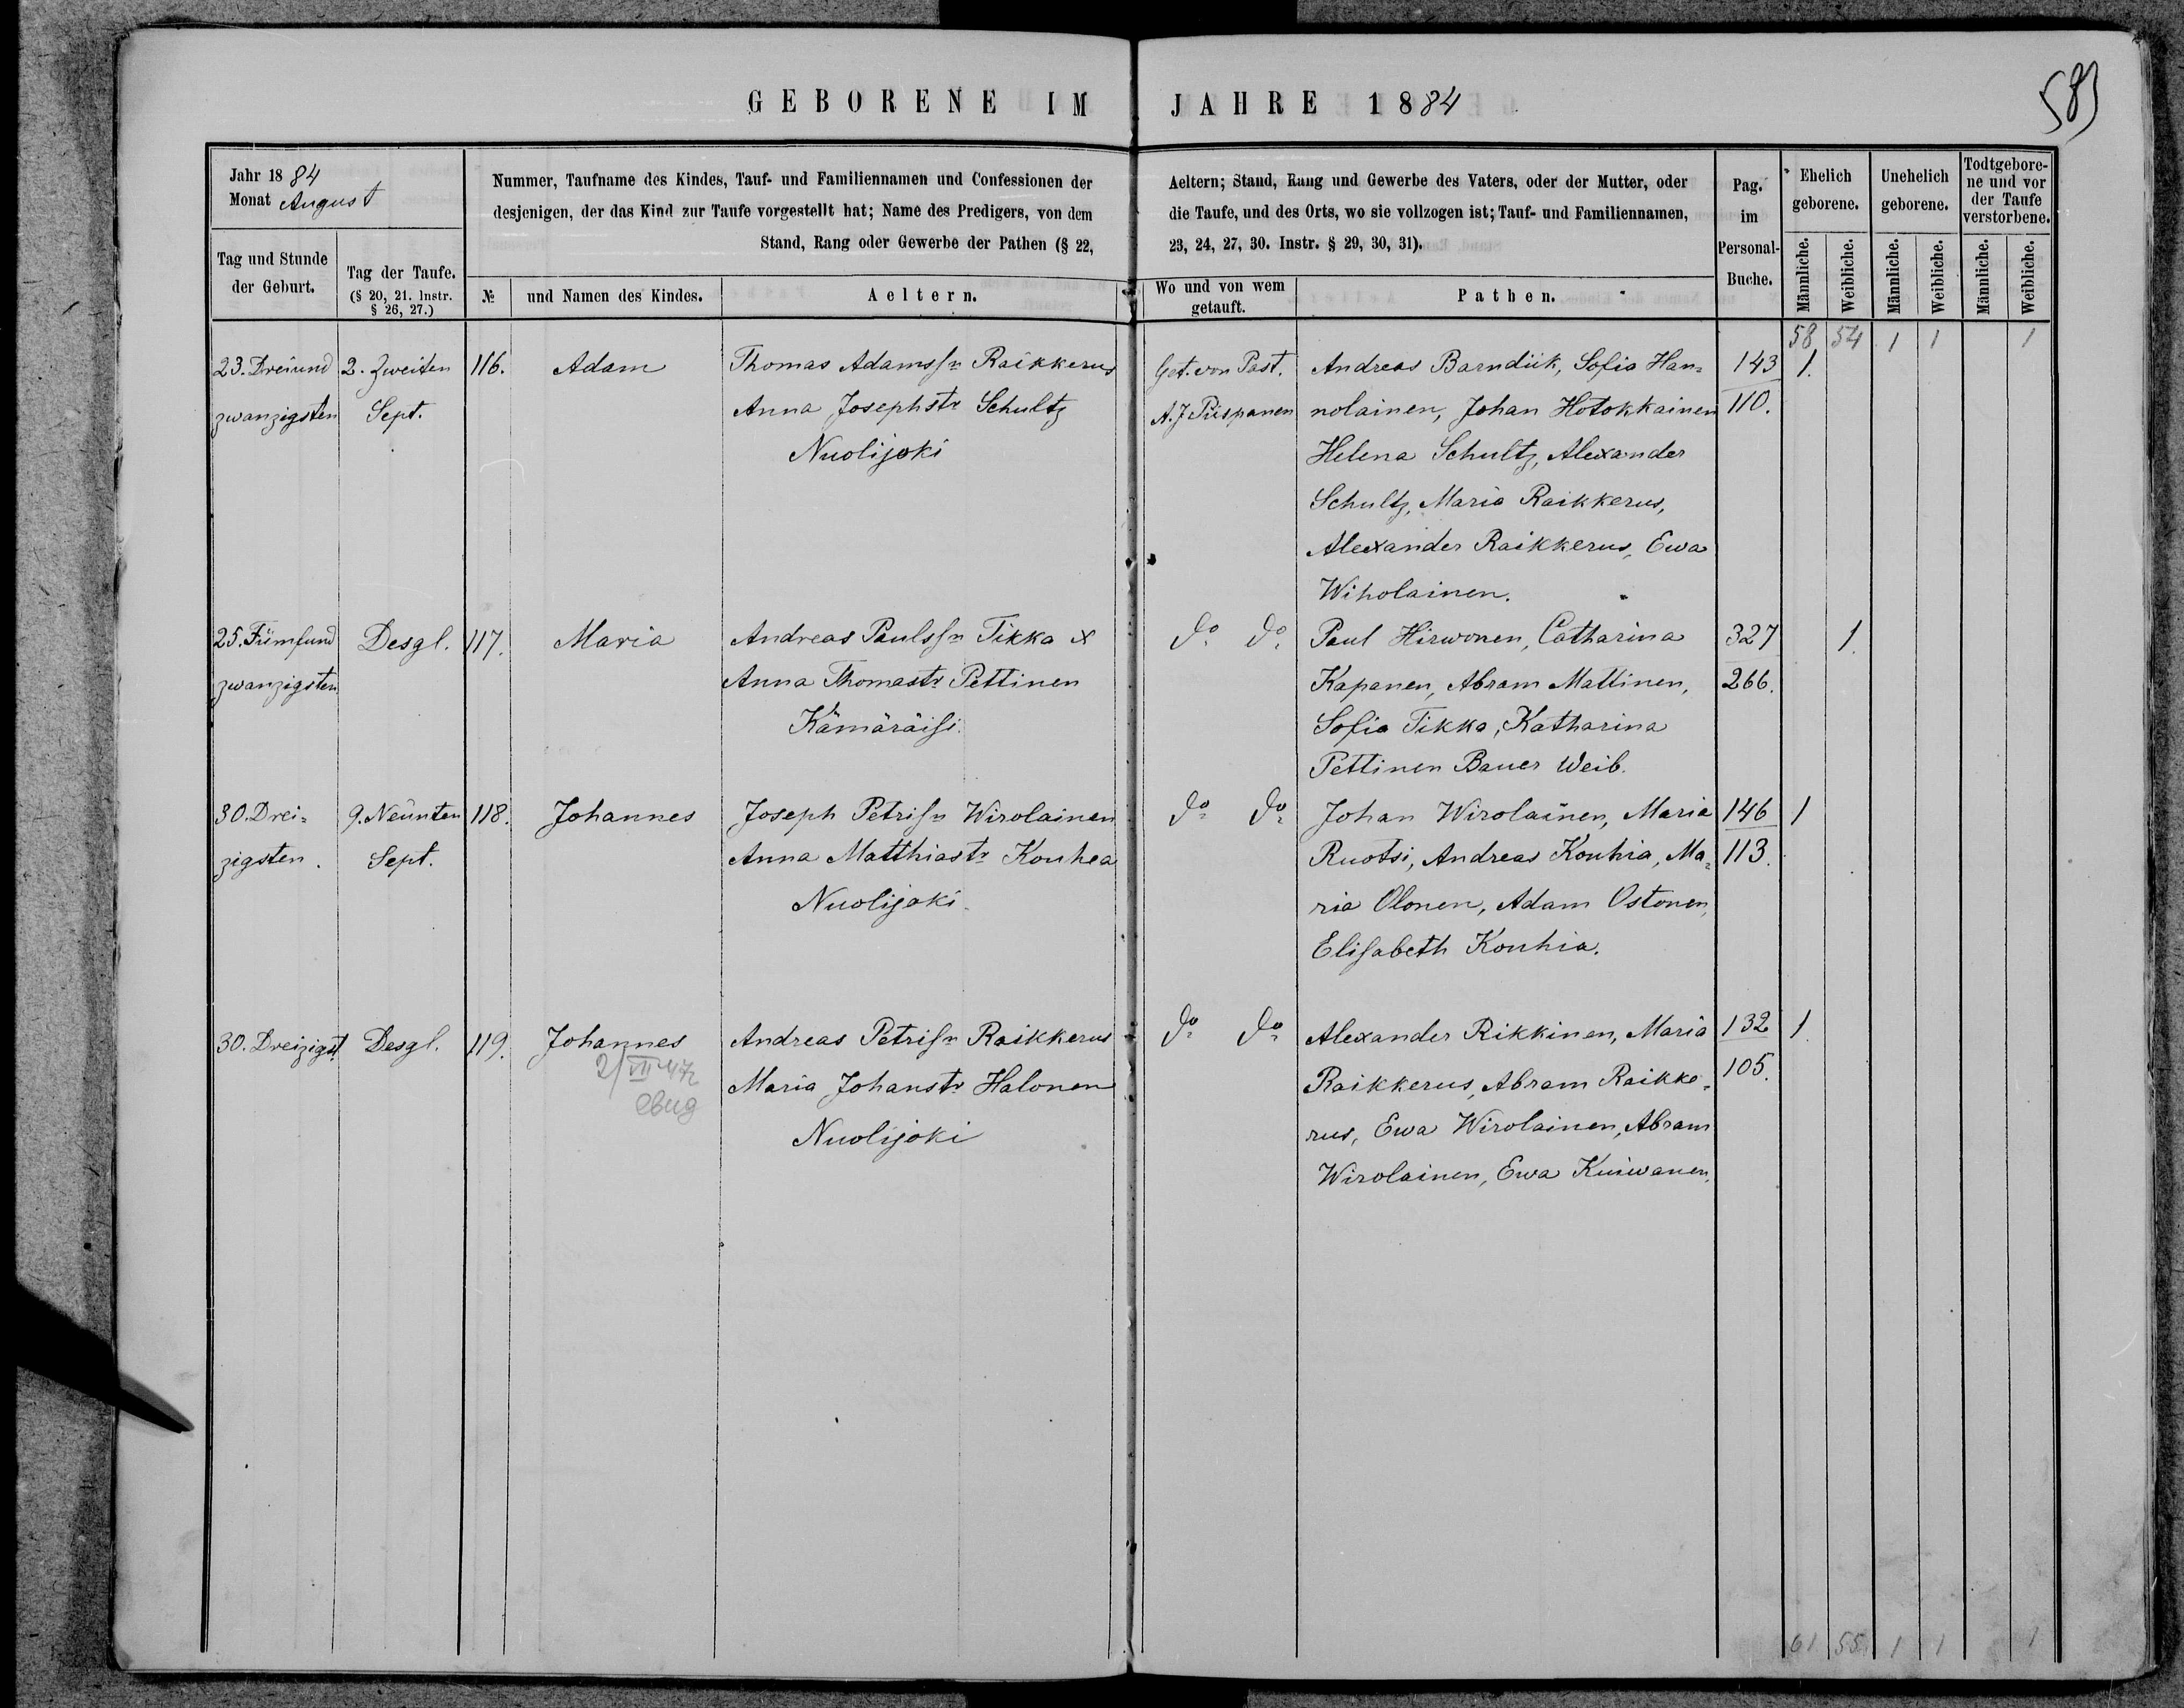 GEBORENE IM JAHRE 1884
583
Jahr 1884
Monat August
Nummer, Taufname des Kindes, Tauf- und Familiennamen und Confessionen der
desjenigen, der das Kind zur Taufe vorgestellt hat; Name des Predigers, von dem
Stand, Rang oder Gewerbe der Pathen (§ 22,
Aeltern; Stand, Rang und Gewerbe des Vaters, oder der Mutter, oder
die Taufe, und des Orts, wo sie vollzogen ist; Tauf- und Familiennamen,
23, 24, 27, 30. Instr. § 29, 30, 31).
Pag.
im
Personal-
Buche.
Ehelich
geborene.
Unehelich
geborene.
Todtgebore-
ne und vor
der Taufe
verstorbene.
Tag und Stunde
der Geburt.
Tag der Taufe.
(§ 20, 21. Instr.
§ 26, 27.)
№
und Namen des Kindes.
Aeltern.
Wo und von wem
getauft.
Pathen.
Männliche.
Weibliche.
Männliche.
Weibliche.
Männliche.
Weibliche.
58 54 1 1 1
23. Dreiund
zwanzigsten
2. Zweiten
Sept.
116.
Adam
Thomas Adamssn Raikkerus
Anna Josephstr Schultz
Nuolijoki
Get. von Past.
A. J. Piispanen
Andreas Barndük, Sofia Han=
nolainen, Johan Hotokkainen
Helena Schultz, Alexander
Schultz, Maria Raikkerus,
Alexander Raikkerus, Ewa
Wiholainen.
143
110.
1.
25. Fünfund
zwanzigsten
Desgl.
117.
Maria
Andreas Paulssn Tikka x
Anna Thomastr Pettinen
Kämäräisi.
do do
Paul Hirwonen, Catharina
Kapanen, Abram Mattinen,
Sofia Tikka, Katharina
Pettinen Bauer Weib.
327
266.
1.
30. Drei=
zigsten.
9. Neunten
Sept.
118.
Johannes
Joseph Petrisn Wirolainen
Anna Matthiastr Kouhea
Nuolijoki.
do do
Johan Wirolainen, Maria
Ruotsi, Andreas Kouhia, Ma=
ria Olonen, Adam Ostonen,
Elisabeth Kouhia.
146
113.
1
30. Dreizigst.
Desgl.
119.
Johannes
2/VII 47
Andreas Petrisn Raikkerus
Maria Johanstr Halonen
Nuolijoki
do do
Alexander Rikkinen, Maria
Raikkerus, Abram Raikke=
rus, Ewa Wirolainen, Abram
Wirolainen, Ewa Kuiwanen.
132
105.
1.
61 55 1 1 1